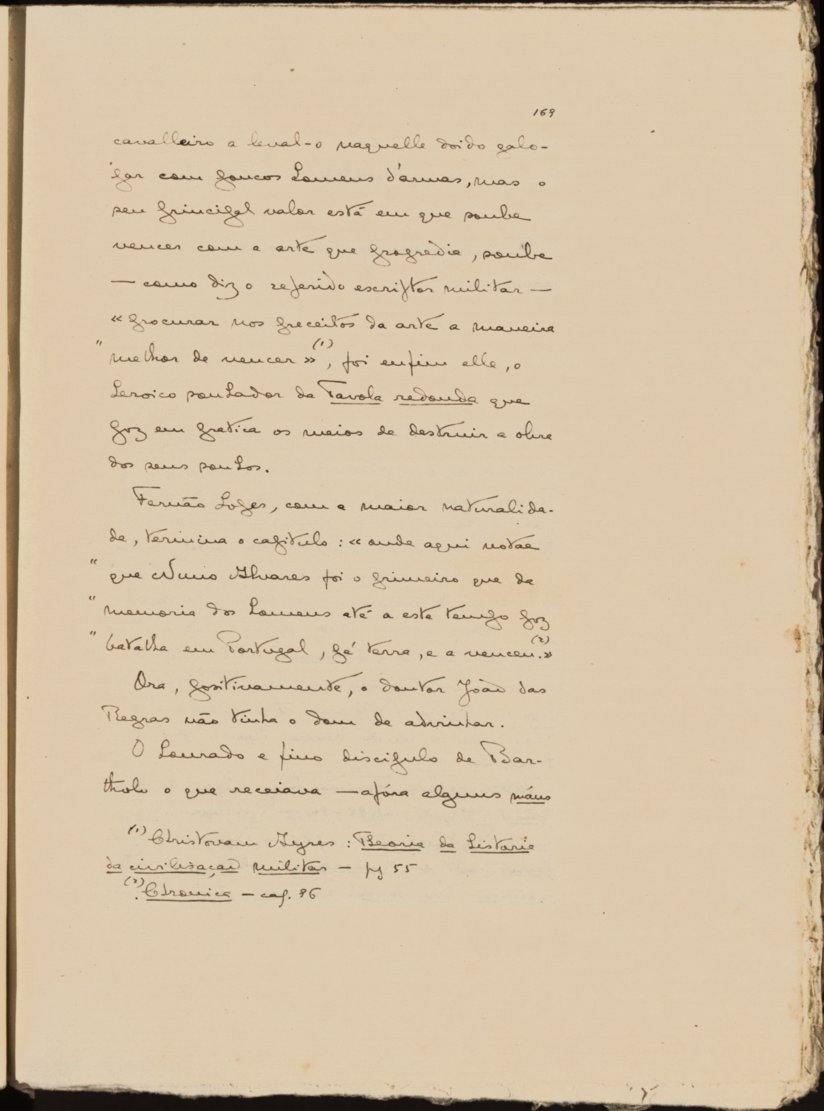 169
cavalleiro a leval-o naquelle doido galo-
par com poucos homens d'armas, mas o
seu principal valor está em que soube
vencer com a arte que progredia, soube
— como diz o referido escriptor militar —
« procurar nos preceitos da arte a maneira
" melhor de vencer » (1), foi enfim elle, o
heroico sonhador da Tavola redonda que
poz em pratica os meios de destruir a obra
dos seus sonhos.
Fernão Lopes, com a maior naturalida-
de, termina o capitulo : « onde aqui notae
" que Nuno Alvares foi o primeiro que da
" memoria dos homens até a este tempo poz
" batalha em Portugal, pé terra, e a venceu. (2) »
Ora, positivamente, o doutor João das
Regras não tinha o dom de advinhar.
O honrado e fino discipulo de Bar-
tholo o que receiava — afóra alguns máus
(1) Christovam Ayres : Theoria da historia
da civilisação militar — pg 55
(2) Chronica — cap. 96